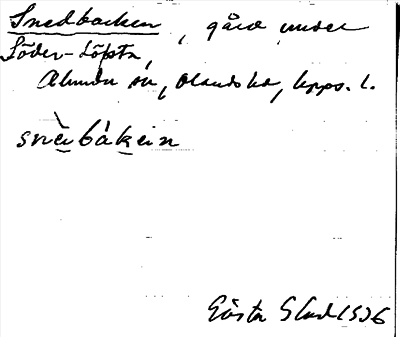 Snedbacken, gård under
Söder-Löfsta,
Almunge sn, Olands hd, Upps. l.
snèi bákein
Gösta 1936